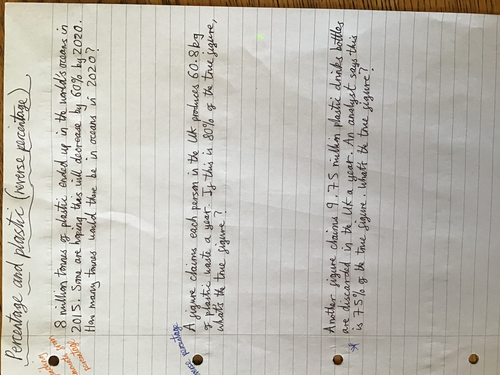 Percentage and plastic (reverse percentage).
8 million tonnes of plastic ended up in the world's oceans in
2015. Some are hoping this will decrease by 60% by 2020.
How many tonnes would there be in oceans in 2020?
A figure claims each person in the UK produces 60.8kg
of plastic waste a year. If this is 80% of the true figure,
what's the true figure?
percentage
Another figure claims 9.75 million plastic drinks bottles
are discarded in the UK a year. An analyst says this
is 75% of the true figure. What's the true figure?